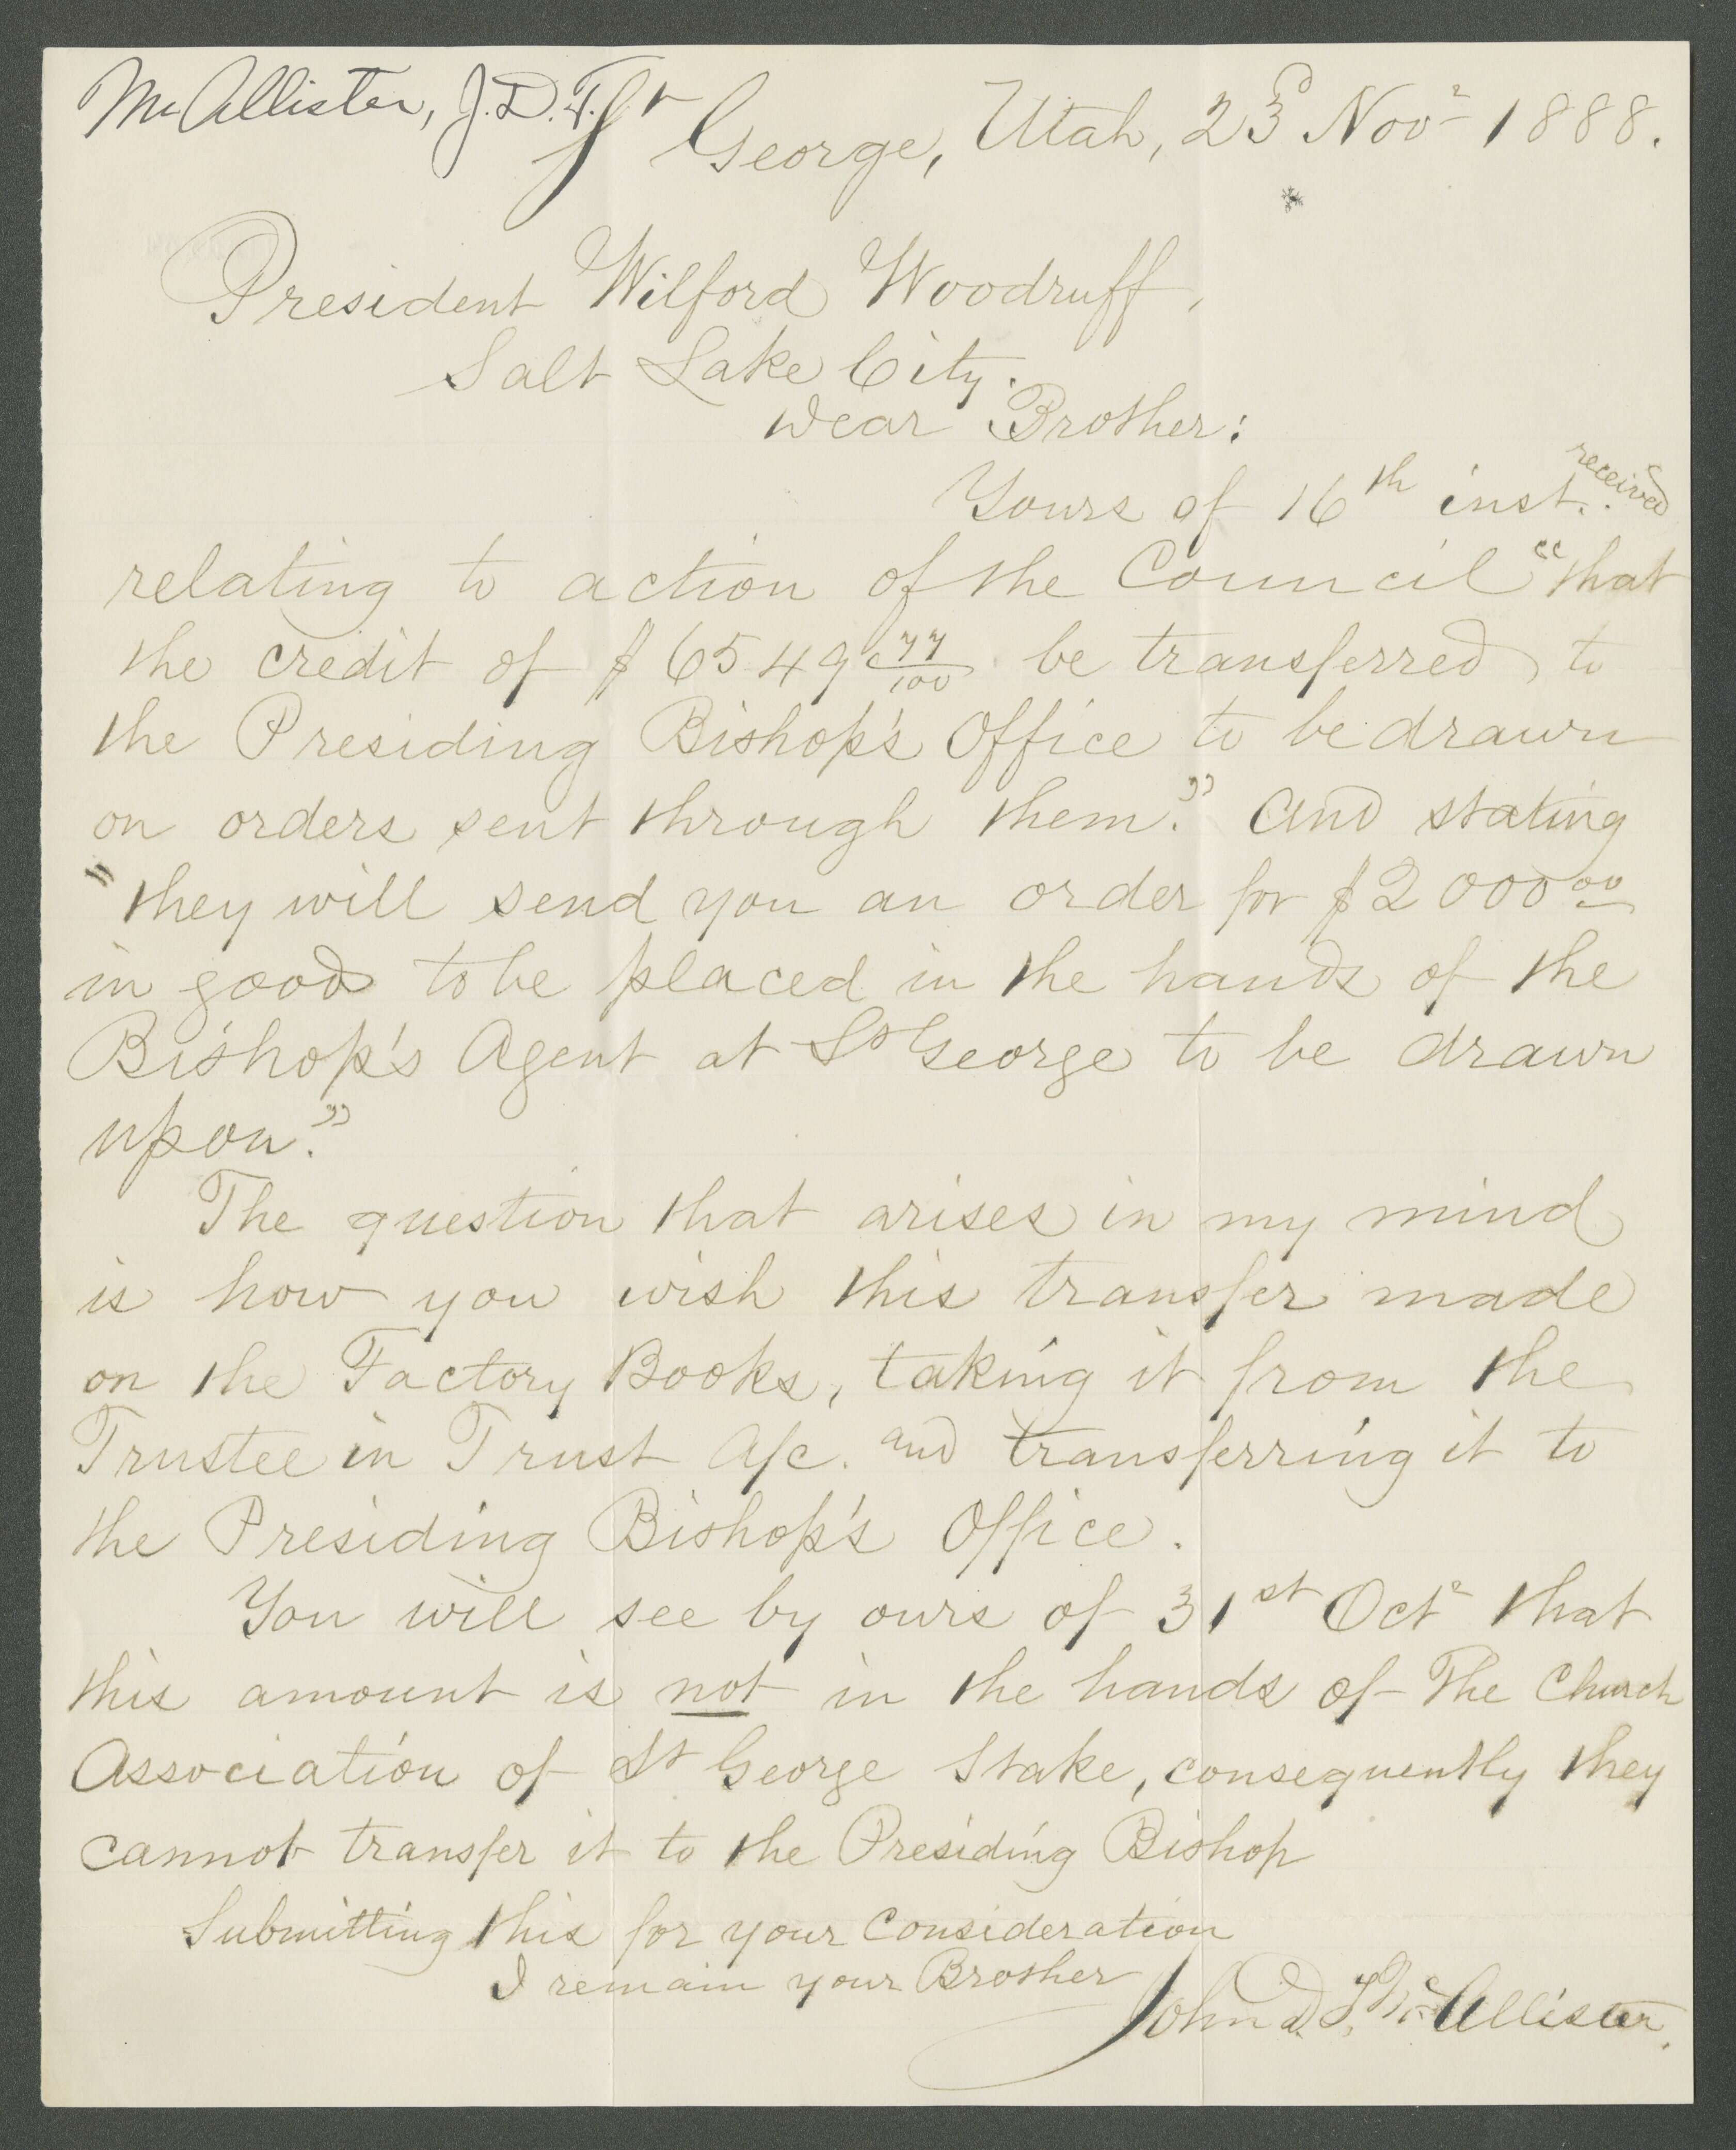 McAllister, J.D.T.
St George, Utah, 23d Novr 1888.
President Wilford Woodruff,
Salt Lake City.
Dear Brother:
Yours of 16th inst. received
relating to action of the Council "that
the credit of $6549 77/100 be transferred to
the Presiding Bishop's Office to be drawn
on orders sent through them." And stating
"they will send you an order for $2000 00
in good to be placed in the hands of the
Bishop's Agent at St George to be drawn
upon."
The question that arises in my mind
is how you wish this transfer made
on the Factory Books, taking it from the
Trustee in Trust A/c. and transferring it to
the Presiding Bishop's Office.
You will see by ours of 31st Octr that
this amount is not in the hands of The Church
Association of St George Stake, consequently they
cannot transfer it to the Presiding Bishop
Submitting this for your Consideration
I remain your Brother
John D. T. McAllister.